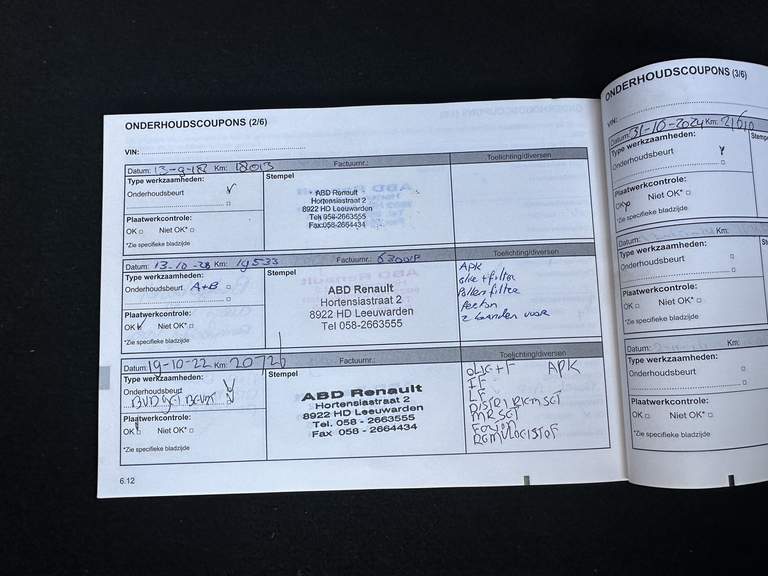 ONDERHOUDSCOUPONS (2/6)
VIN:
Datum: 13-9-18 Km: 18013 Factuurnr.: Toelichting/diversen
Type werkzaamheden:
Stempel
Onderhoudsbeurt
ABD Renault
Hortensiastraat 2
8922 HD Leeuwarden
Tel: 058-2663555
Fax:058-2664434
Plaatwerkcontrole:
OK Niet OK*
*Zie specifieke bladzijde
Datum: 13-10-20 Km: 19533 Factuurnr.: Toelichting/diversen
Type werkzaamheden:
Stempel
Onderhoudsbeurt A+B
ABD Renault
Hortensiastraat 2
8922 HD Leeuwarden
Tel 058-2663555
APK
olie+filter
Pollenfilter
2 banden voor
Plaatwerkcontrole:
OK Niet OK*
*Zie specifieke bladzijde
Datum: 19-10-22 Km: 20726 Factuurnr.: Toelichting/diversen
Type werkzaamheden:
Stempel
Onderhoudsbeurt
ABD Renault
Hortensiastraat 2
8922 HD Leeuwarden
Tel. 058 - 2663555
Fax 058 - 2664434
OLIE+F APK
IF
LF
REMVLOEISTOF
Plaatwerkcontrole:
OK Niet OK*
*Zie specifieke bladzijde
6.12
ONDERHOUDSCOUPONS (3/6)
VIN:
Datum: 31-10-2024 Km: 21610
Type werkzaamheden:
Onderhoudsbeurt
Plaatwerkcontrole:
OK Niet OK*
*Zie specifieke bladzijde
Datum: Km:
Type werkzaamheden:
Onderhoudsbeurt
Plaatwerkcontrole:
OK Niet OK*
*Zie specifieke bladzijde
Datum: Km:
Type werkzaamheden:
Onderhoudsbeurt
Plaatwerkcontrole:
OK Niet OK*
*Zie specifieke bladzijde